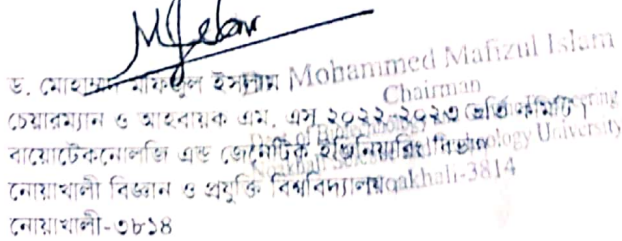 ড. মোহাম্মদ মফিজুল ইসলাম
চেয়ারম্যান ও আহবায়ক এম. এস ২০২২-২০২৩ ভর্তি কমিটি
বায়োটেকনোলজি এন্ড জেনেটিক ইঞ্জিনিয়ারিং বিভাগ
নোয়াখালী বিজ্ঞান ও প্রযুক্তি বিশ্ববিদ্যালয়
নোয়াখালী-৩৮১৪
Mohammed Mafizul Islam
Chairman
Dept. of Biotechnology Engineering
Noakhali Science Technology University
Noakhali-3814